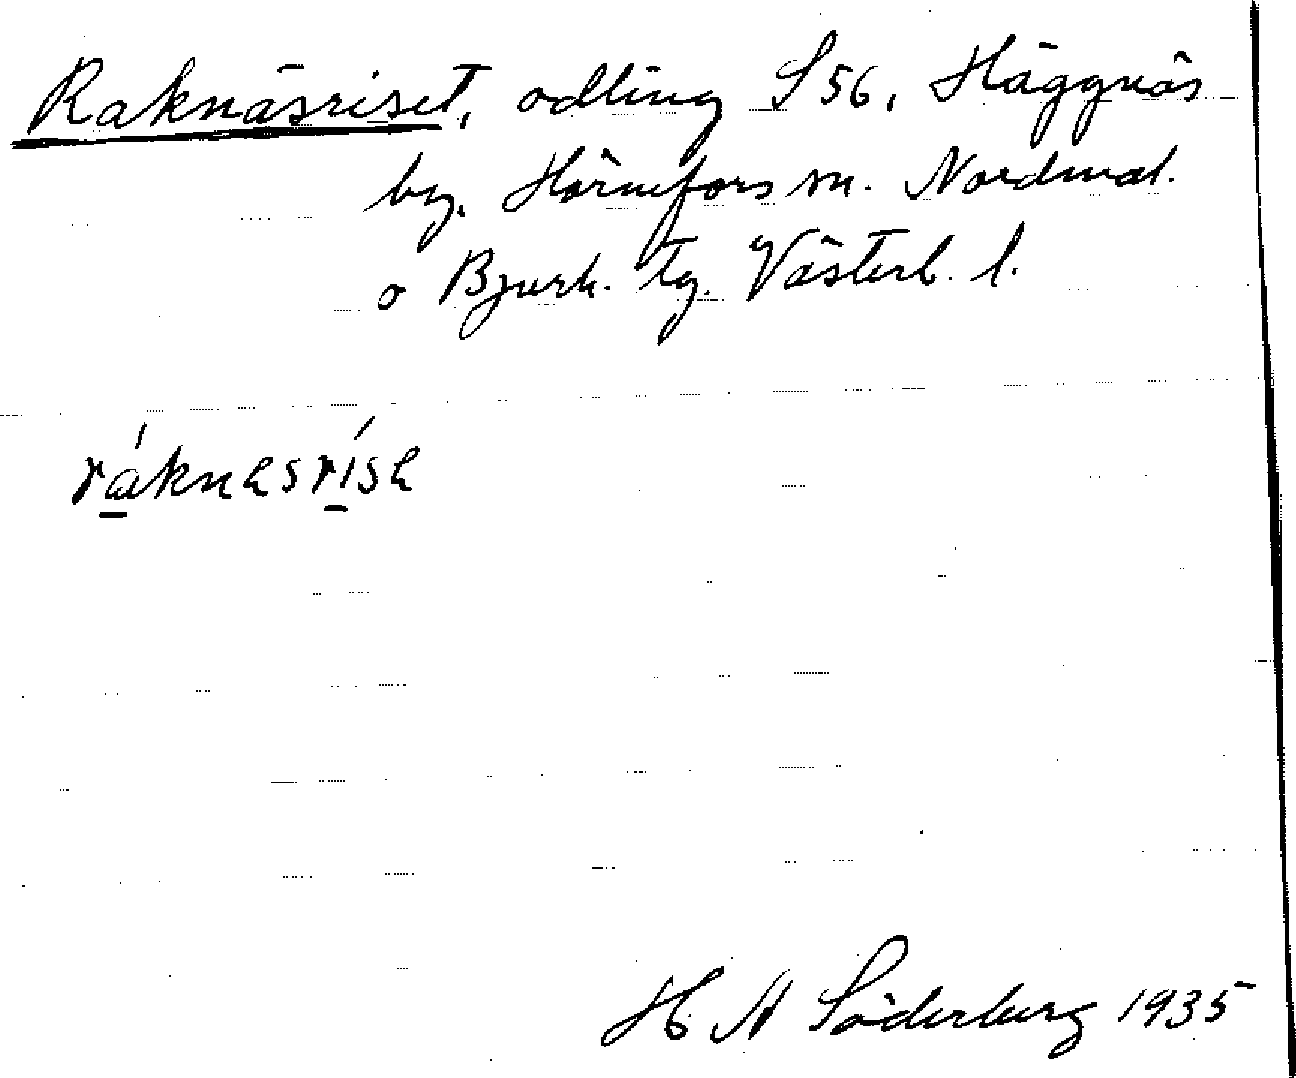 Raknäsriset, odling S 56, Häggnäs
by. Hörnefors sn. Nordmal.
o Bjurh. tg. Västerb. l.
ráknesríse
H A Söderberg 1935